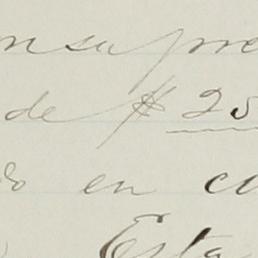 en su pre
de $ 25
do en co
Esta